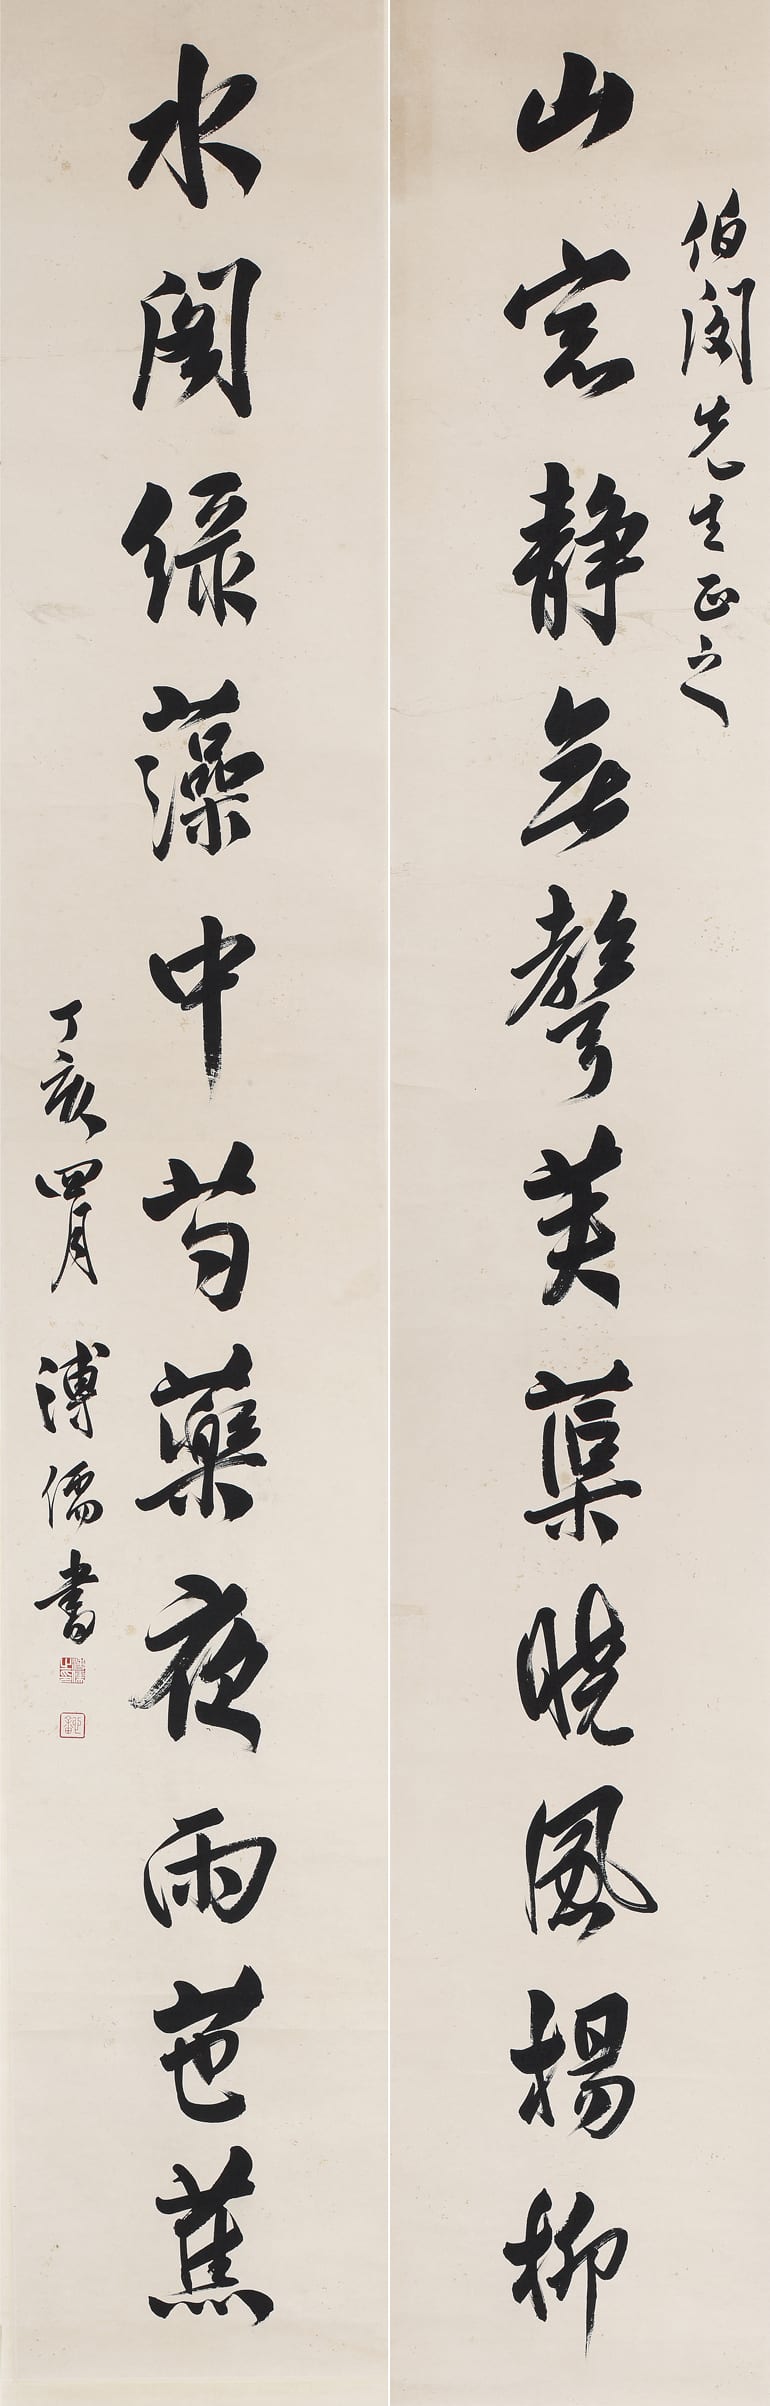 伯閔先生正之
山窓静無聲芙蕖曉風楊柳
水閣緑藻中芍藥夜雨芭蕉
丁亥四月溥儒書